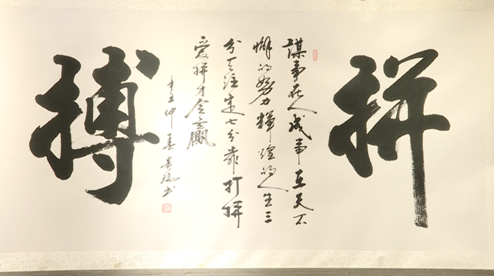 拼
謀事在人成事在天不
懈的努力輝煌的人生三
分天注定七分靠打拼
爱拼才会赢
辛丑仲春书
搏